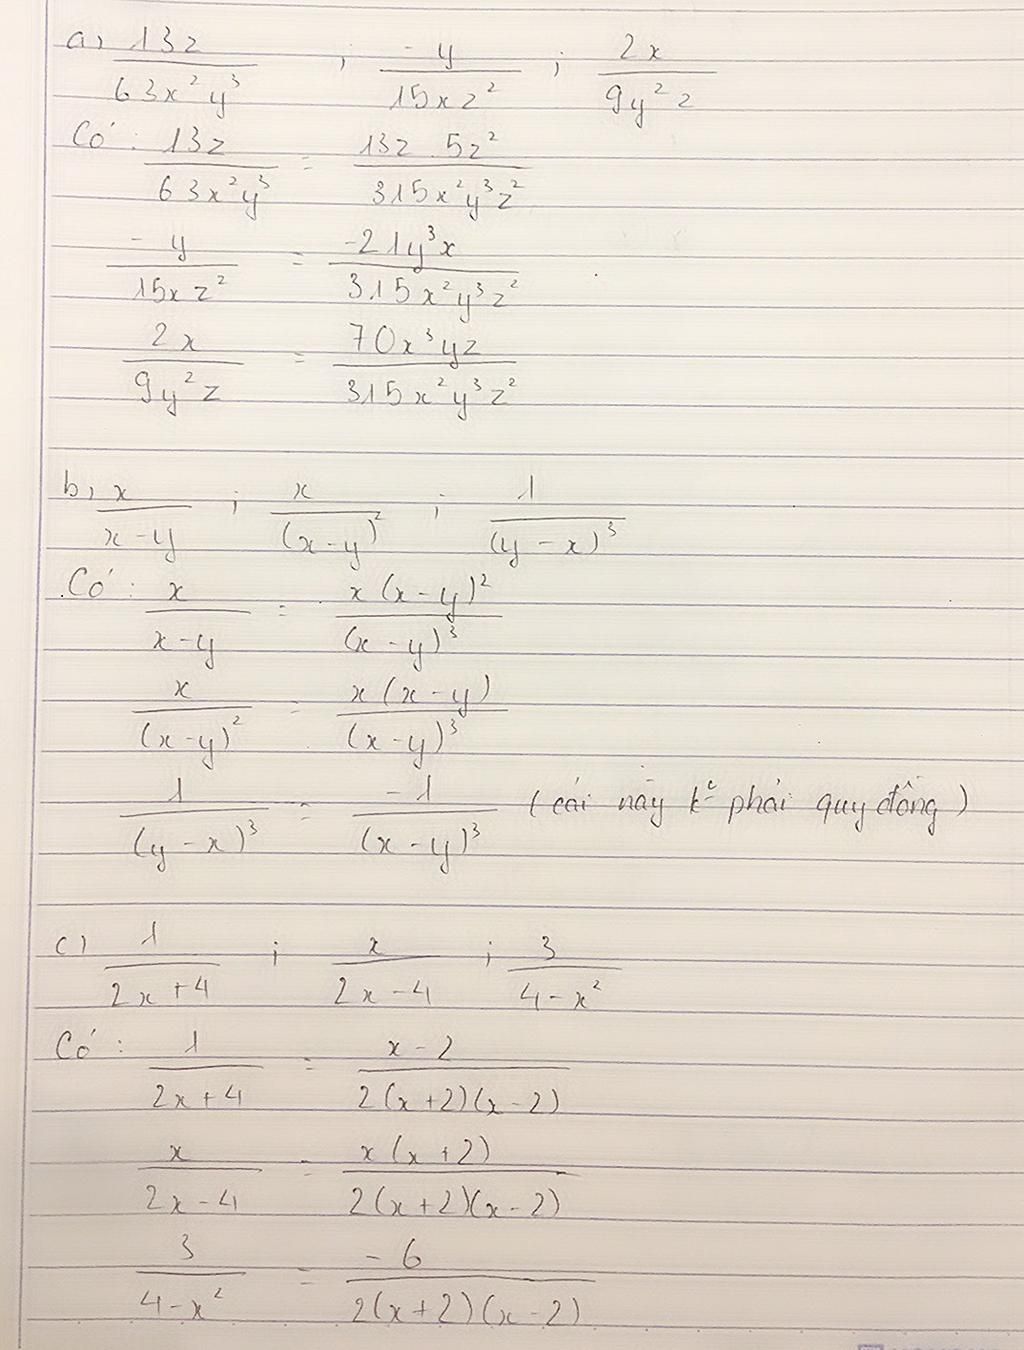 a, 13z / 63x²y³ ; -y / 15xz² ; 2x / 9y²z
Có : 13z / 63x²y³ = 13z . 5z² / 315x²y³z²
-y / 15xz² = -21y³x / 315x²y³z²
2x / 9y²z = 70x³yz / 315x²y³z²
b, x / x-y ; x / (x-y)² ; 1 / (y-x)³
Có : x / x-y = x(x-y)² / (x-y)³
x / (x-y)² = x(x-y) / (x-y)³
1 / (y-x)³ = -1 / (x-y)³ (cái này kc phải quy đồng)
c) 1 / 2x+4 ; x / 2x-4 ; 3 / 4-x²
Có : 1 / 2x+4 = x-2 / 2(x+2)(x-2)
x / 2x-4 = x(x+2) / 2(x+2)(x-2)
3 / 4-x² = -6 / 2(x+2)(x-2)